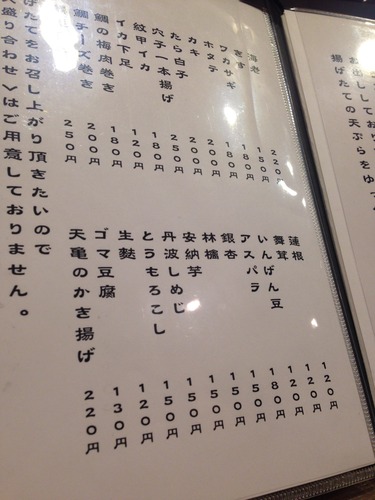 お出しして
揚げたての天ぷらをゆ
海老 220円
きす 150円
ワカサギ 180円
ホタテ 180円
カキ
たら白子
穴子一本揚げ
紋甲イカ 180円
イカ下足 120円
鯛の梅肉巻き 180円
鯛チーズ巻き 200円
250円
蓮根 120円
舞茸 120円
いんげん豆 120円
アスパラ 180円
銀杏 150円
林檎 150円
安納芋 150円
丹波しめじ 150円
とうもろこし 150円
生麩 120円
ゴマ豆腐 130円
天亀のかき揚げ 220円
げたてをお召し上がり頂きたいので
盛り合わせ＞はご用意しておりません。